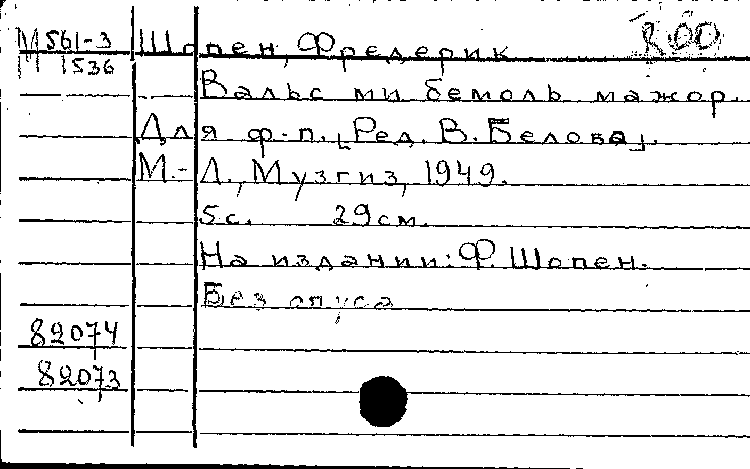 М 561-3 Шопен, Фредерик
М 1536
Вальс ми бемоль мажор.
Для ф-п. [Ред. В. Белова].
М.-Л., Музгиз, 1949.
5с. 29см.
На издании: Ф. Шопен.
Без опуса
82074
82073